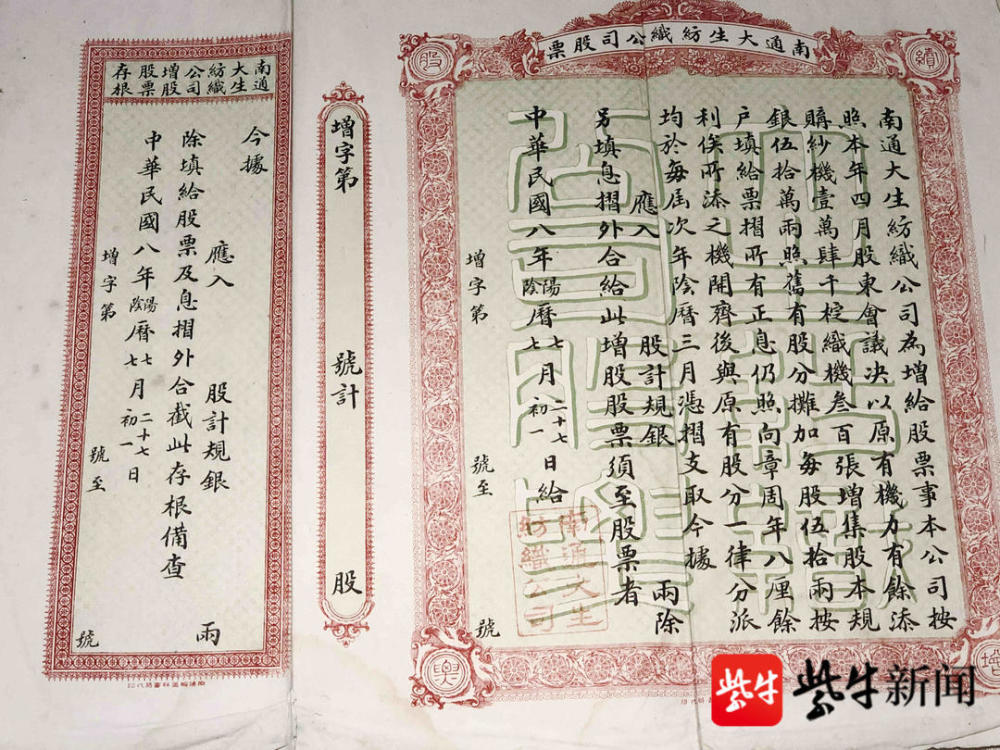 南通大生紡織公司股票
續
股
增
南通大生紡織公司為增給股票事本公司按
照本年四月股東會議決以原有機力有餘添
購紗機壹萬肆千椗織機叁百張增集股本規
銀伍拾萬兩照舊有股分攤加每股伍拾兩按
戶填給票摺所有正息仍照向章周年八厘餘
利俟所添之機開齊後與原有股分一律分派
均於每屆次年陰曆三月憑摺支取今據
應入 股計規銀 兩除
另填息摺外合給此增股股票須至股票者
中華民國八年陽陰曆七七月二十七初一日給
增字第 號至 號
南通大生
紡織公司
增字第 號計 股
南通大生紡織公司增股股票存根
今據
應入 股計規銀 兩
除填給股票及息摺外合截此存根備查
中華民國八年陽陰曆七七月二十七初一日
增字第 號至 號
紫牛 紫牛新闻